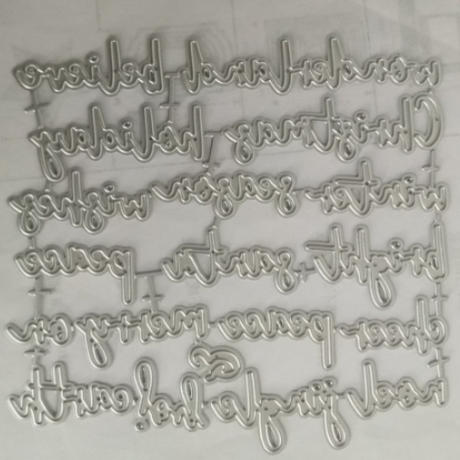 wonderland believe
Christmas holiday
winter season wishes
bright santa peace
cheer peace merry on
&
noel jingle ho! earth